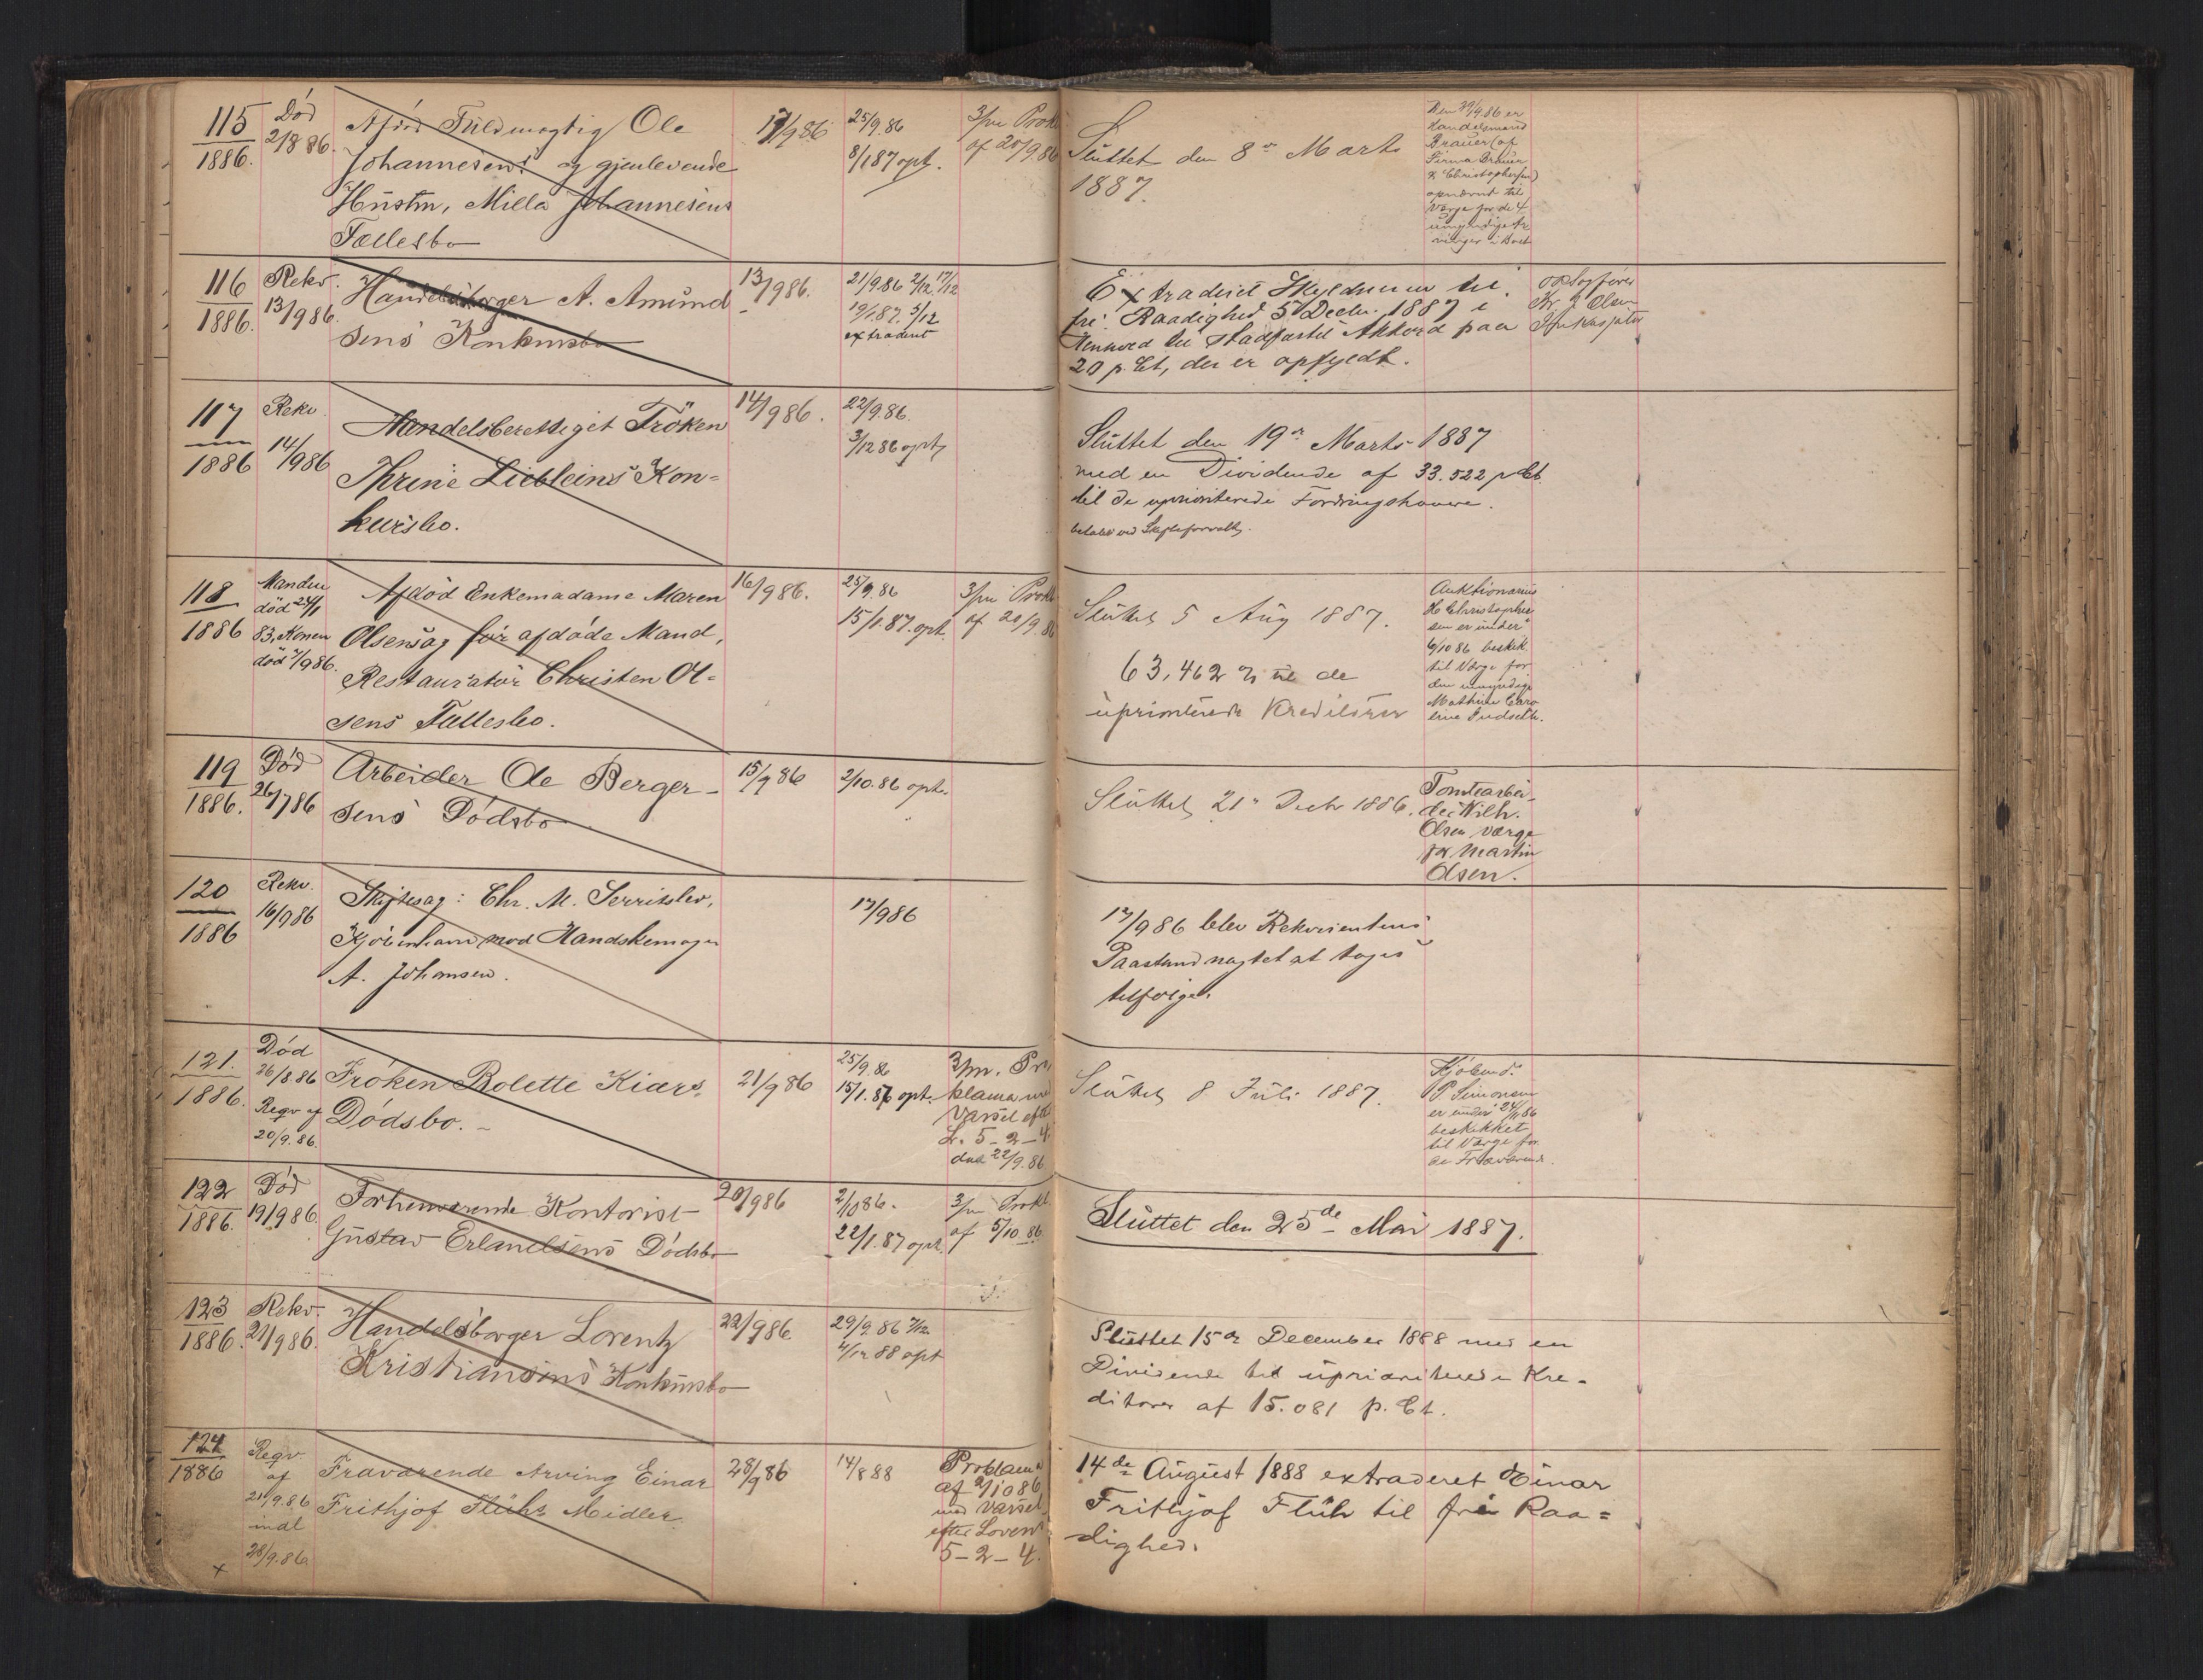 115
1886.
Død
2/8 86.
Afdød Fuldmægtig Ole
Johannesens og gjenlevende
Hustru, Milla Johannesens
Fællesbo
17/9 86
25/9.86
8/1 87 opt.
3/m Prokl
af 20/9.86
Sluttet den 8de Marts
1887.
Den 29/9.86 er
Handelsmand
Brauer (af
Firma Brauer
& Christophersen)
opnævnt til
Værge for de 4
umyndige Ar-
vinger i Boet
116
1886.
Rekv.
13/9 86.
Handelsborger A. Amund-
sens Konkursbo
13/9 86.
21/9.86 2/12. 17/12
19/1.87. 5/12
extraderet
Extraderet Skyldneren til
fri Raadighed 5 Decbr. 1887 i
Henhold til stadfæstet Akkord paa
20 p. Ct, der er opfyldt.
Sagfører
Kr. J. Olsen
117
1886
Rekv.
14/9 86
Handelsberettiget Frøken
Thrine Liebleins Kon-
kursbo.
14/9 86.
22/9.86.
3/12 86 opt,
Sluttet den 19de Marts 1887
med en Dividende af 33.522 p Ct
til de uprioriterede Fordringshavere.
betalt ved Skifteforvaltn.
118
1886
Manden
død 24/1
83, Konen
død 7/9 86.
Afdød Enkemadame Maren
Olsens og før afdøde Mand,
Restauratør Christen Ol-
sens Fællesbo.
16/9 86.
25/9.86
15/1.87. opt.
3/m Prokl
af 20/9.86
Sluttet 5 Aug 1887.
63,462 % til de
uprioriterede Kreditorer
Auktionarius
H. Christopher-
sen er under
6/10 86 beskik.
til Værge for
den umyndige
Mathilde Caro-
line Gudseth.
119
1886.
Død
26/7 86
Arbeider Ole Berger-
sens Dødsbo
15/9 86
2/10.86 opt.
Sluttet 21de Decbr 1886.
Tomtearbei-
der Wilh.
Olsen værge
for Martin
Olsen.
120
1886
Rekv.
16/9 86
Skiftesag: Chr. M. Serritslev,
Kjøbenhavn mod Handskemager
A. Johansen.
17/9 86
17/9 86 blev Rekvirentens
Paastand nægtet at tages
tilfølge.
121.
1886.
Død
26/8.86
Reqv af
20/9.86.
Frøken Bolette Kiærs
Dødsbo.
21/9 86
25/9.86
15/1.87 opt.
3/m. Pro
klama med
Varsel efter
L. 5-2-4.
dat 22/9.86
Sluttet 8 Juli 1887.
Kjøbmd.
P Simonsen
er under 24/9 86
beskikket
til Værge for
de Fraværende.
122
1886.
Død
19/9 86.
Forhenværende Kontorist
Gustav Erlandsens Dødsbo
20/9 86
2/10 86.
22/1.87 opt.
3/m Prokl.
af 5/10.86
Sluttet den 25de Mai 1887.
123
1886.
Rekv.
21/9 86.
Handelsborger Lorentz
Kristiansens Konkursbo
22/9 86
29/9.86
4/12 88 opt
Sluttet 15de December 1888 med en
Dividende til uprioriterede Kre-
ditorer af 15.081 p. Ct.
124
1886
Reqv.
af
21/9.86
indl
28/9.86
Fraværende Arving Einar
Frithjof Flühs Midler.
28/9 86
14/8 88
Proklama
af 2/10 86
med Varsel
efter Lovens
5-2-4.
14de August 1888 extraderet Einar
Frithjof Flüh til fri Raa=
dighed.